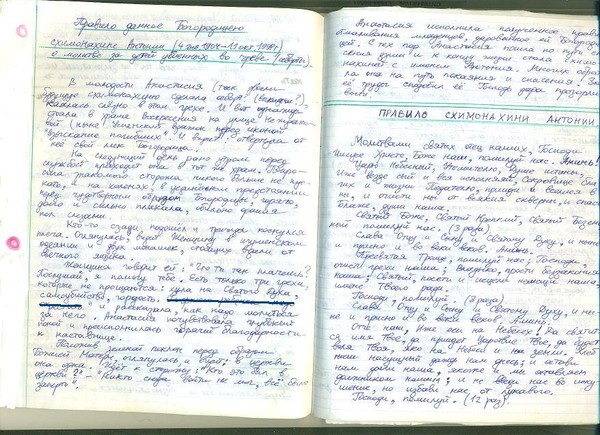 Правило данное Богородицею
схимонахине Антонии
о молитве за детей убиенных во чреве (аборт).
В молодости Анастасия (так звали
будущую схимонахиню) сделала аборт
каялась слёзно в этом грехе. И вот однажды
стояла в храме Воскресения на улице
вой (ныне Успенский вражек) перед иконой
"Взыскание погибших". И видит, отвергла от
неё свой лик Богородица.
На следующий день рано утром перед
службой приходит она в тот же храм.
сила знакомого сторожа никого больше не пус-
кать, и на коленях, в уединении предстояла
пред чудотворным образом Богородицы,
долго и сильно плакала, обильно слезами
пол слезами.
Кто-то сзади подошёл и трижды коснулся
плеча. Оглянулась, видит Женщину в иноческом
одеянии и с двух монахов, стоящих вдали от
светского ящика.
Женщина говорит ей: "Что ты так плачешь?
Послушай, я помогу тебе. Есть только три греха,
которые не прощаются: хула на Святого Духа,
самоубийство, гордость.
" и рассказала, как надо молиться
за него. Анастасия почувствовала глубокий
покой и преисполнилась горячей благодарности
к наставнице.
Положив земной поклон перед образом
Божией Матери, оглянулась и видит: в церкви
она одна. Идёт к сторожу: "Кто это был в
церкви?" - "Никто сюда войти не мог, всё было
заперто".
Анастасия исполнила полученное правило
отмаливания младенцев, дарованное ей Богороди-
цей. С тех пор Анастасия пошла по пути
сения души и к концу жизни стала схимо-
нахиней с именем Антония. Многих обра-
ла она на путь покаяния и спасения. За
её труды сподобил её Господь дара прозорли-
вости.
ПРАВИЛО СХИМОНАХИНИ АНТОНИИ
Молитвами святых отец наших, Господи
Иисусе Христе, Боже наш, помилуй нас. Аминь!
Царю Небесный, Утешителю, Душе истины,
Иже везде сый и вся исполняяй, Сокровище бла-
гих и жизни Подателю, прииди и вселися в
ны, и очисти ны от всякия скверны, и спаси,
Блаже, души наша.
Святый Боже, Святый Крепкий, Святый Безсмер-
ный помилуй нас. (3 раза)
Слава Отцу и Сыну и Святому Духу, и ныне
и присно и во веки веков. Аминь.
Пресвятая Троице, помилуй нас; Господи,
очисти грехи наша; Владыко, прости беззакония
наша; Святый, посети и исцели немощи наша,
имене Твоего ради.
Господи, помилуй. (3 раза)
Слава Отцу и Сыну и Святому Духу, и ны-
не и присно и во веки веков. Аминь!
Отче наш, Иже еси на Небесех! Да святит-
ся имя Твое, да приидет Царствие Твое, да будет
воля Твоя, яко на Небеси и на земли. Хлеб
наш насущный даждь нам днесь; и остави
нам долги наша, якоже и мы оставляем
должником нашим; и не введи нас во иску-
шение, но избави нас от лукаваго.
Господи, помилуй. (12 раз).